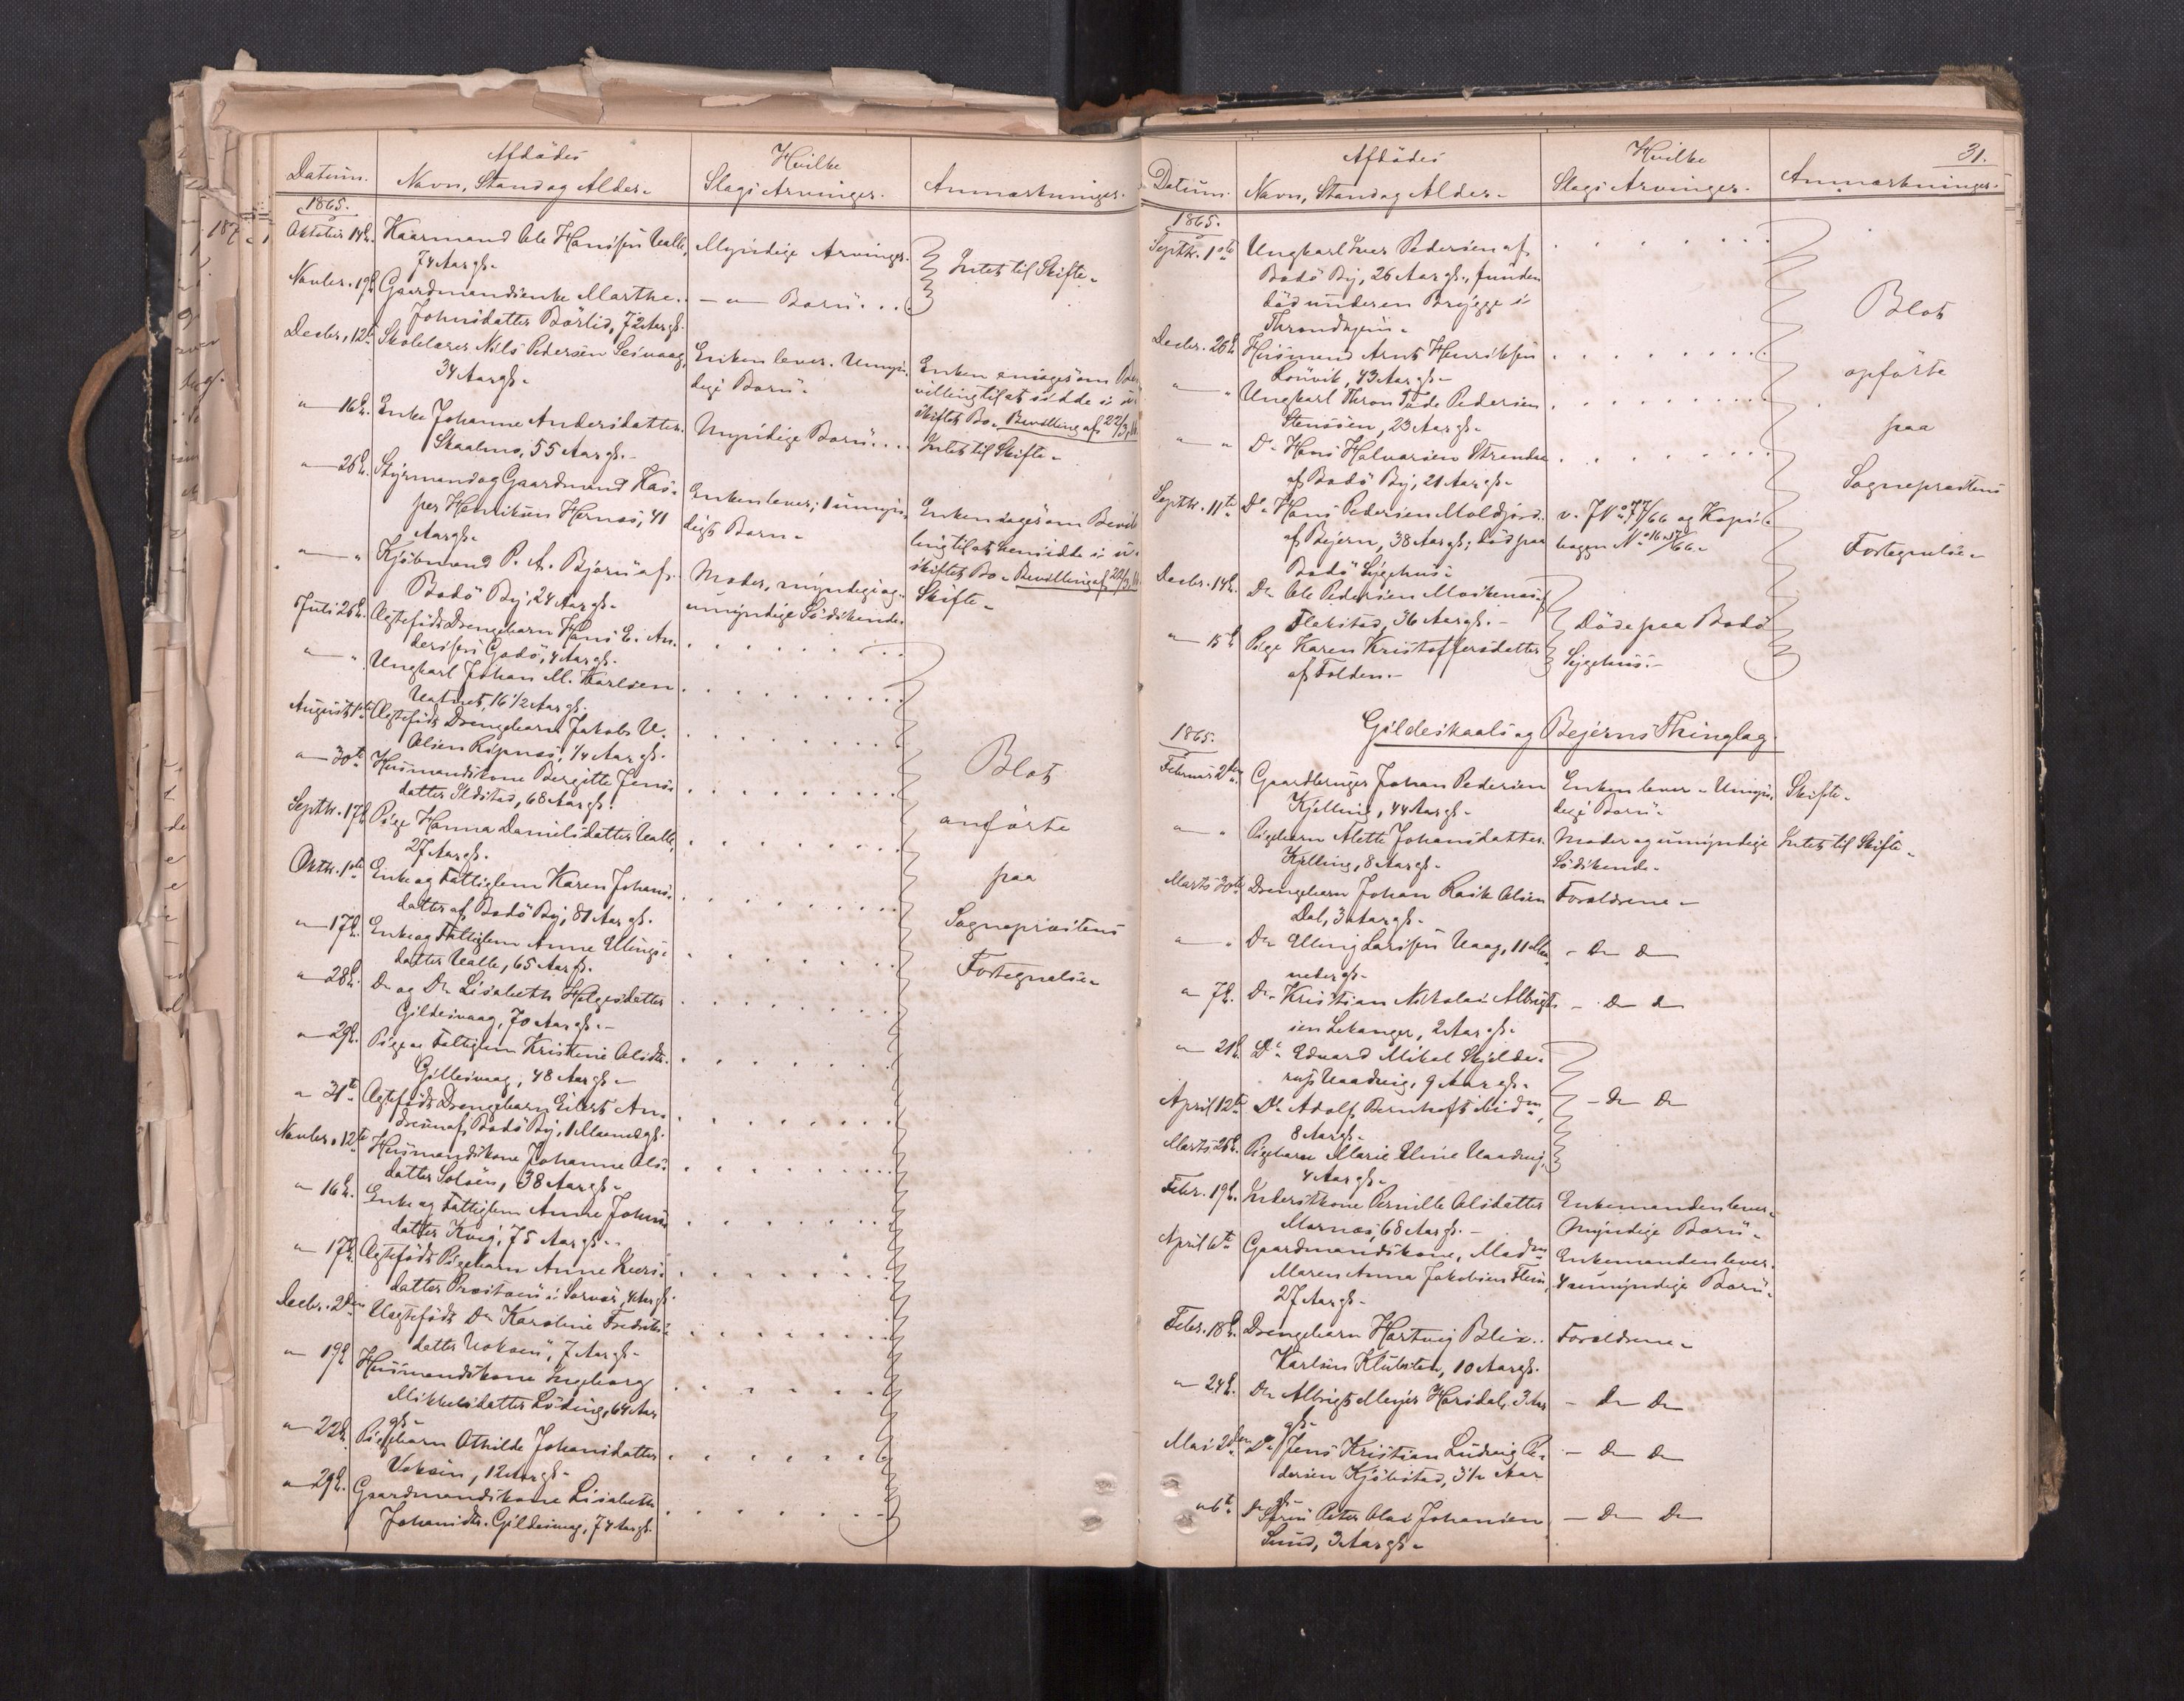 Datum.
Afdödes
Navn, Stand og Alder.
Hvilke
Slags Arvinger.
Anmærkninger.
1865.
Oktober 14de
Kaarmand Ole Hanssen Valle,
74 Aar gl.
Myndige Arvinger.
Intet til Skifte.
Novbr. 19de
Gaardmandsenke Marthe
Johnsdatter Börlid, 72 Aar gl.
— " — Börn . . .
Decbr. 12te
Skolelærer Nils Pedersen Seivaag,
34 Aar gl.
Enken lever. Umyn-
dige Börn.
Enken eniges om Be-
villing til at sidde i u-
skiftet Bo. Bevilling af 22/3,
" — 16de
Enke Johanne Andersdatter
Skaalnes, 55 Aar gl.
Myndige Börn . . .
Intet til Skifte.
" — 26de
Styrmand og Gaardmand Kas-
per Henriksen Hernæs, 41
Aar gl.
Enken lever; 1 umyn-
digt Barn.
Enken söges om Bevil-
ling til at hensidde i u-
skiftet Bo. Bevilling af 22/3,
" — "
Kjöbmand P. A. Björn af
Bodö By, 24 Aar gl.
Moder, myndige og
umyndige Södskende.
Skifte.
Juli 26de
Ægtefödt Drengebarn Hans E. An-
derssen Godö, 4 Aar gl.
" — "
Ungkarl Johan M. Karlsen
Vatnet, 16 1/2 Aar gl.
August 1ste
Ægtefödt Drengebarn Jakob U.
Olsen Ripnæs, 1/4 Aar gl.
" — 30te
Husmandskone Bergitte Jens-
datter Ildstad, 68 Aar gl.
Septbr. 17de
Pige Hanna Danielsdatter Valle,
27 Aar gl.
Oktbr. 1ste
Enke og Fattiglem Karen Johans-
datter af Bodö By, 81 Aar gl.
" — 17de
Enke og Fattiglem Anne Ellings-
datter Valle, 65 Aar gl.
" — 28de
Do og Do Lisabeth Helgesdatter
Gildesvaag, 70 Aar gl.
" — 29de
Pige og Fattiglem Kristine Olsdtr.
Gillesvaag, 48 Aar gl.
" — 31te
Ægtefödt Drengebarn Eilert An-
dresen af Bodö By, 1 Maaned gl.
Novbr. 12te
Husmandskone Johanne Ols-
datter Soloen, 38 Aar gl.
" — 16de
Enke og Fattiglem Anne Johns-
datter Kvig, 75 Aar gl.
" — 17de
Ægtefödt Pigebarn Anne Keers-
datter Præstoen i Sörvær, 4 Aar gl.
Decbr. 2den
Uægtefödt Do Karoline Fredriks-
datter Voksen, 7 Aar gl.
" — 19de
Husmandskone Ingeborg
Mikkelsdatter Löding, 64 Aar
gl.
" — 22de
Pigebarn Othilde Johansdatter
Voksen, 12 Aar gl.
" — 29de
Gaardmandskone Lisabeth
Johansdtr. Gildesvaag, 74 Aar gl.
Blot
anförte
paa
Sogneprestens
Fortegnelse.
31.
Datum.
Afdödes
Navn, Stand og Alder.
Hvilke
Slags Arvinger.
Anmærkninger.
1865.
Septbr. 1ste
Ungkarl Iver Pedersen af
Bodö By, 26 Aar gl., funden
död under en Brygge i
Throndhjem.
Decbr. 26de
Husmand Arnt Henriksen
Löuvik, 43 Aar gl.
" — "
Ungkarl Thron Tode Pedersen
Stenöien, 23 Aar gl.
" — "
Do Hans Halvorsen Strande
af Bodö By, 21 Aar gl.
Septbr. 11te
Do Hans Pedersen Moldjord
af Bejern, 38 Aar gl., död paa
Bodö Sygehus.
v. J No 77/66 og Kopi-
bogen No
Decbr. 14de
Do Ole Pedersen Moskenæs
Flakstad, 36 Aar gl. —
" — 15de
Pige Karen Kristoffersdatter
af Folden.
Döde paa Bodö
Sygehus.
Blot
opförte
paa
Sogneprestens
Fortegnelse.
1865.
Gildeskaals og Bejerns Thinglag
Februar 2den
Gaardbruger Johan Pedersen
Kjelling, 44 Aar gl.
Enken lever. Umyn-
dige Börn.
Skifte.
" — "
Pigebarn Alette Johansdatter
Kjelling, 8 Aar gl.
Moder og umyndige
Södskende.
Intet til Skifte.
Marts 30te
Drengebarn Johan Rask Olsen
Dal, 3 Aar gl.
Forældrene.
" — "
Do Elling Larssen Vaag, 11 Maa-
neder gl.
- Do Do
" 7de
Do Kristian Nikolai Albrigt-
sen Lekanger, 2 Aar gl.
- Do Do
" 21de
Do Edvard Mikal Skjelde-
rup Vaadvig, 9 Aar gl.
April 12te
Do Adolf Bernhoft Midm,
8 Aar gl.
- Do Do
Marts 26de
Pigebarn Marie Eline Vaadvig,
4 Aar gl.
Febr. 19de
Inderstkone Pernille Olsdatter
Marnæs, 68 Aar gl. —
Enkemanden lever.
Myndige Börn.
April 6te
Gaardmandskone, Madm
Maren Anna Jakobsen Flein,
27 Aar gl.
Enkemanden lever.
4 umyndige Börn.
Febr. 18de
Drengebarn Hartvig Blix
Karlsen Klubsten, 10 Aar gl.
Forældrene.
" 24de
Do Albrigt Meyer Horsdal, 3 Aar
gl.
- Do Do
Mai 2den
Do Jens Kristian Ludvig Pe-
dersen Kjöbstad, 3 1/2 Aar
gl.
- Do Do
" 6te
Do Sören Peter Olai Johansen
Sund, 3 Aar gl.
- Do Do